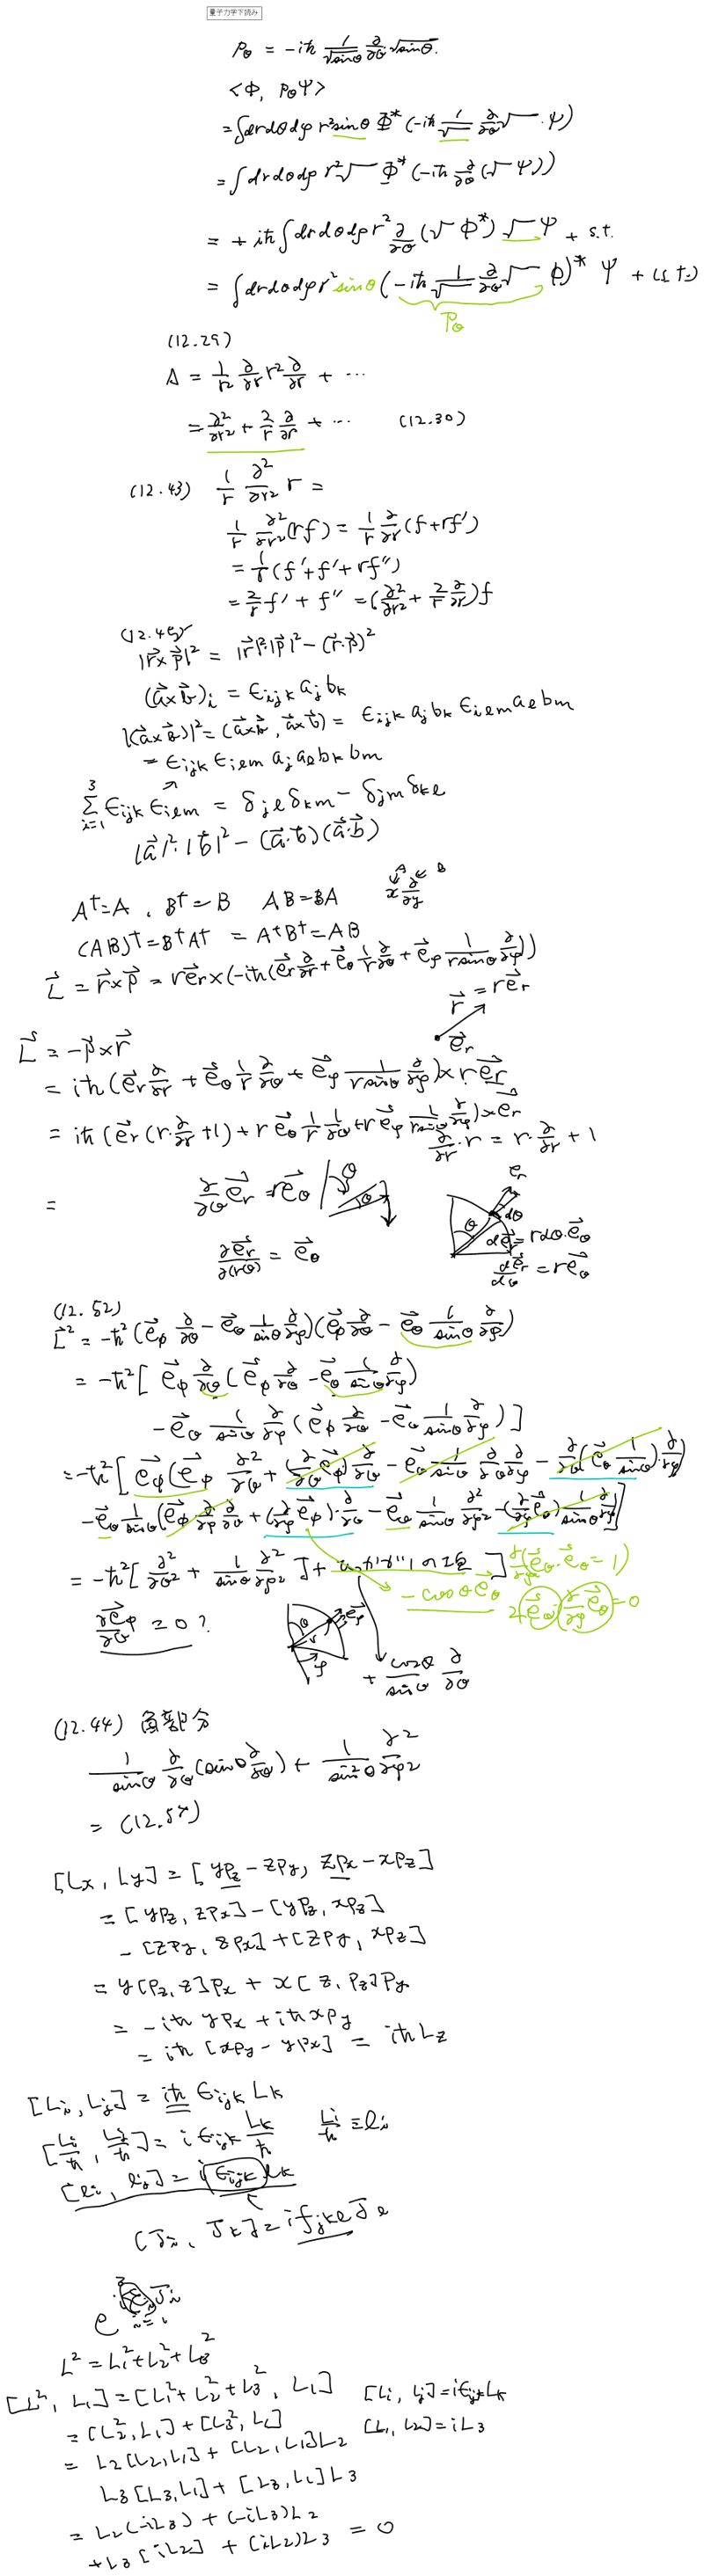 量子力学下読み
P_θ = -iħ 1/√sinθ ∂/∂θ √sinθ.
<Φ, P_θ Ψ>
= ∫drdθdφ r² sinθ Φ* (-iħ 1/√ ∂/∂θ √ ・Ψ)
= ∫drdθdφ r² √ Φ* (-iħ ∂/∂θ (√ Ψ))
= +iħ ∫drdθdφ r² ∂/∂θ (√ Φ*) √ Ψ + s.t.
= ∫drdθdφ r² sinθ (-iħ 1/√ ∂/∂θ √ Φ)* Ψ + (s.t.)
P_θ
(12.29)
Δ = 1/r² ∂/∂r r² ∂/∂r + ⋯
= ∂²/∂r² + 2/r ∂/∂r + ⋯ (12.30)
(12.43) 1/r ∂²/∂r² r =
1/r ∂²/∂r² (rf) = 1/r ∂/∂r (f+rf')
= 1/r (f'+f'+rf'')
= 2/r f' + f'' = (∂²/∂r² + 2/r ∂/∂r) f
|r⃗×p⃗|² = |r⃗|²・|p⃗|² - (r⃗・p⃗)²
(a⃗×b⃗)_i = ε_ijk a_j b_k
|(a⃗×b⃗)|² = (a⃗×b⃗, a⃗×b⃗) = ε_ijk a_j b_k ε_iem a_e b_m
= ε_ijk ε_iem a_j a_e b_k b_m
Σ_{i=1}^3 ε_ijk ε_iem = δ_je δ_km - δ_jm δ_ke
|a⃗|²・|b⃗|² - (a⃗・b⃗)(a⃗・b⃗)
A†=A, B†=B AB=BA x ∂/∂y A B
(AB)† = B†A† = A†B† = AB
L⃗ = r⃗×p⃗ = r e⃗_r × (-iħ (e⃗_r ∂/∂r + e⃗_θ 1/r ∂/∂θ + e⃗_φ 1/(r sinθ) ∂/∂φ))
r⃗ = r e⃗_r
e⃗_r
L⃗ = -p⃗×r⃗
= iħ (e⃗_r ∂/∂r + e⃗_θ 1/r ∂/∂θ + e⃗_φ 1/(r sinθ) ∂/∂φ) × r e⃗_r
= iħ (e⃗_r (r・∂/∂r +1) + r e⃗_θ 1/r ∂/∂θ + r e⃗_φ 1/(r sinθ) ∂/∂φ) × e⃗_r
∂/∂r・r = r・∂/∂r + 1
= ∂/∂θ e⃗_r = r e⃗_θ θ θ
e_r
θ dθ
de⃗_r = r dθ・e⃗_θ
∂e⃗_r/∂(rθ) = e⃗_θ
de⃗_r/dθ = r e⃗_θ
(12.52)
L⃗² = -ħ² (e⃗_φ ∂/∂θ - e⃗_θ 1/sinθ ∂/∂φ)(e⃗_φ ∂/∂θ - e⃗_θ 1/sinθ ∂/∂φ)
= -ħ² [ e⃗_φ ∂/∂θ (e⃗_φ ∂/∂θ - e⃗_θ 1/sinθ ∂/∂φ)
- e⃗_θ 1/sinθ ∂/∂φ (e⃗_φ ∂/∂θ - e⃗_θ 1/sinθ ∂/∂φ) ]
= -ħ² [ e⃗_φ (e⃗_φ ∂²/∂θ² + (∂/∂θ e⃗_φ) ∂/∂θ - e⃗_θ 1/sinθ ∂/∂θ ∂/∂φ - ∂/∂θ (e⃗_θ 1/sinθ)・∂/∂φ)
- e⃗_θ 1/sinθ (e⃗_φ ∂/∂φ ∂/∂θ + (∂/∂φ e⃗_φ)・∂/∂θ - e⃗_θ 1/sinθ ∂²/∂φ² - (∂/∂φ e⃗_θ) 1/sinθ ∂/∂φ) ]
= -ħ² [ ∂²/∂θ² + 1/sinθ ∂²/∂φ² ] + の項 ] ∂/∂φ (e⃗_θ・e⃗_θ = 1)
-cosθ e⃗_θ 2 e⃗_θ・∂/∂φ e⃗_θ = 0
∂e⃗_φ/∂θ = 0 ?
θ r e⃗_φ φ
+ cosθ/sinθ ∂/∂θ
(12.44) 角部分
1/sinθ ∂/∂θ (sinθ ∂/∂θ) + 1/sin²θ ∂²/∂φ²
[L_x, L_y] = [yP_z - zP_y, zP_x - xP_z]
= [yP_z, zP_x] - [yP_z, xP_z]
- [zP_y, zP_x] + [zP_y, xP_z]
= y[P_z, z]P_x + x[z, P_z]P_y
= -iħ yP_x + iħ xP_y
= iħ [xP_y - yP_x] = iħ L_z
[L_i, L_j] = iħ ε_ijk L_k
[L_i/ħ, L_j/ħ] = i ε_ijk L_k/ħ L_i/ħ ≡ l_i
[l_i, l_j] = i ε_ijk l_k
[J_i, J_k] = i f_jke J_e
L² = L_1² + L_2² + L_3²
[L², L_1] = [L_1² + L_2² + L_3², L_1] [L_i, L_j] = iε_ijk L_k
= [L_2², L_1] + [L_3², L_1] [L_1, L_2] = iL_3
= L_2[L_2, L_1] + [L_2, L_1]L_2
L_3[L_3, L_1] + [L_3, L_1]L_3
= L_2(-iL_3) + (-iL_3)L_2
+ L_3[iL_2] + (iL_2)L_3 = 0